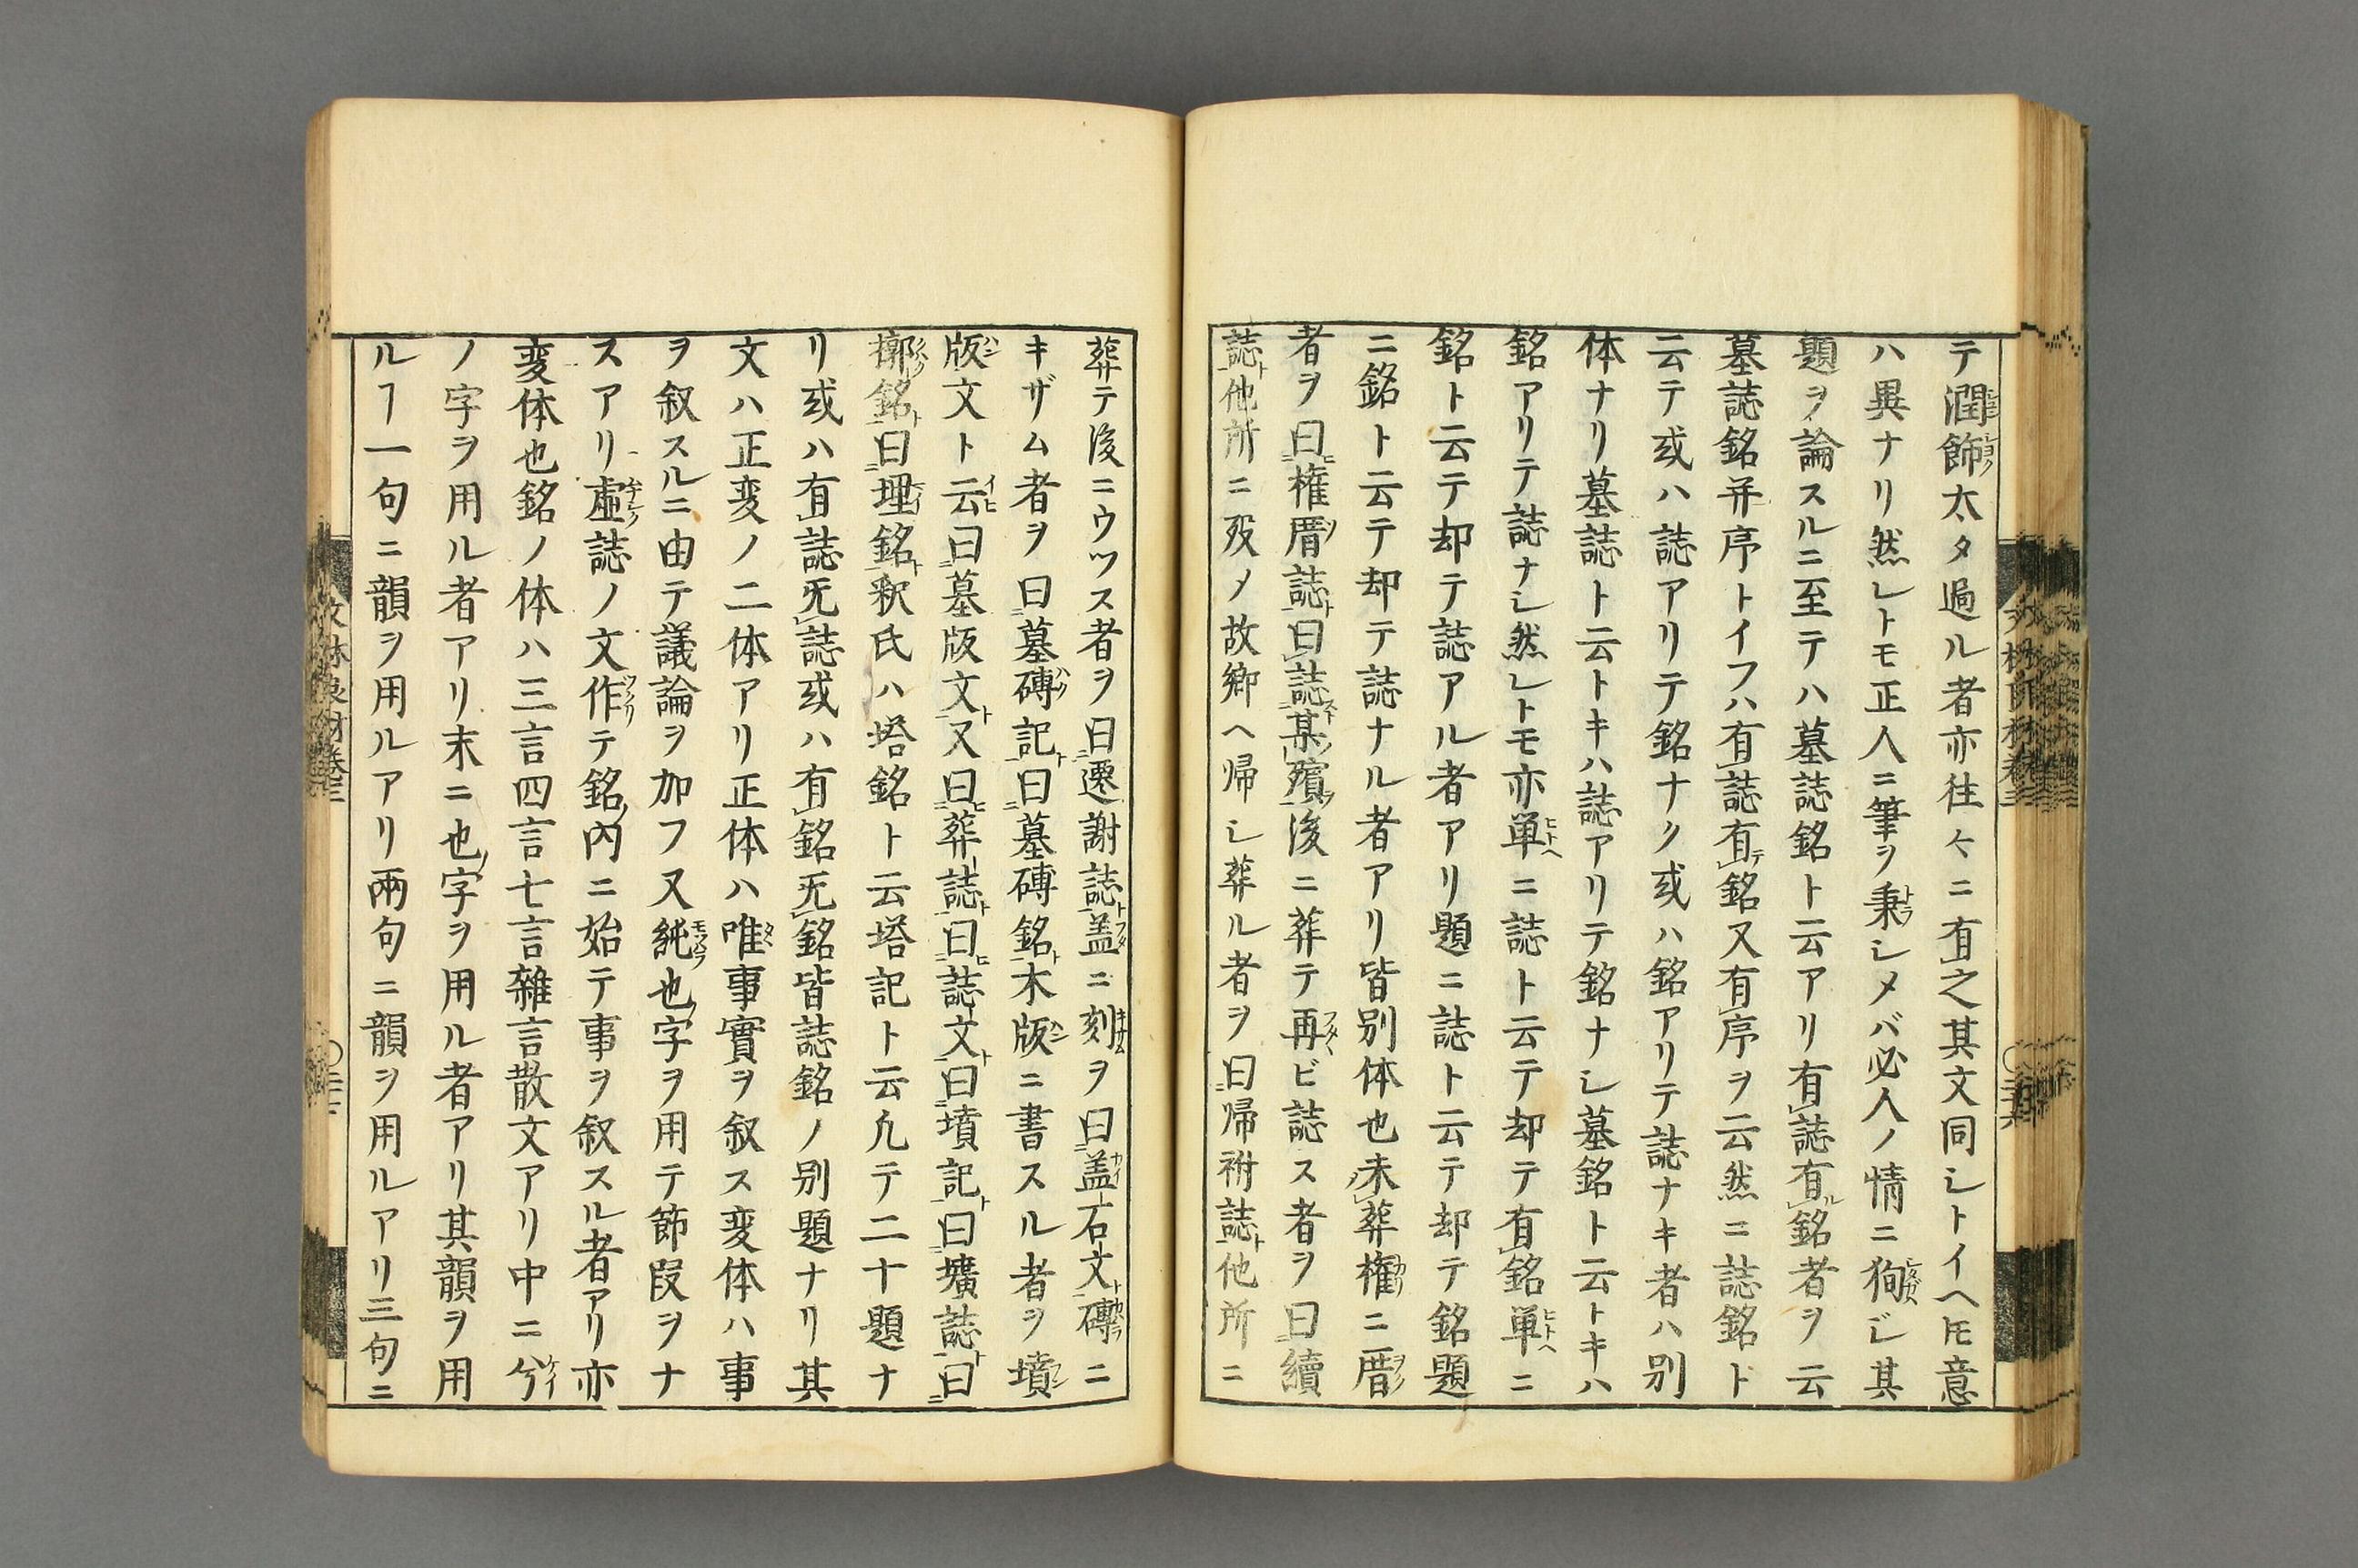 テ潤飾太タ過ル者亦往々ニ有之其文同シトイヘ𪜈意
ハ異ナリ然レトモ正人ニ筆ヲ秉シメバ必人ノ情ニ狥ジ其
題ヲ論スルニ至テハ墓誌銘ト云アリ有誌有銘者ヲ云
墓誌銘并序トイフハ有誌有銘又有序ヲ云然ニ誌銘ト
云テ或ハ誌アリテ銘ナク或ハ銘アリテ誌ナキ者ハ別
体ナリ墓誌ト云トキハ誌アリテ銘ナシ墓銘ト云トキハ
銘アリテ誌ナシ然レトモ亦単ニ誌ト云テ却テ有銘単ニ
銘ト云テ却テ誌アル者アリ題ニ誌ト云テ却テ銘題
ニ銘ト云テ却テ誌ナル者アリ皆別体也未葬権ニ厝
者ヲ曰権厝誌曰誌某殯後ニ葬テ再ビ誌ス者ヲ曰續
誌他所ニ殁メ故郷ヘ帰シ葬ル者ヲ曰帰祔誌他所ニ
葬テ後ニウツス者ヲ曰遷謝誌盖ニ刻ヲ曰盖石文磚ニ
キザム者ヲ曰墓磚記曰墓磚銘木版ニ書スル者ヲ墳
版文ト云曰墓版文又曰葬誌曰誌文曰墳記曰壙誌曰
槨銘曰埋銘釈氏ハ塔銘ト云塔記ト云凢テ二十題ナ
リ或ハ有誌旡誌或ハ有銘旡銘皆誌銘ノ別題ナリ其
文ハ正変ノ二体アリ正体ハ唯事實ヲ叙ス変体ハ事
ヲ叙スルニ由テ議論ヲ加フ又純也字ヲ用テ節段ヲナ
スアリ虚誌ノ文作テ銘内ニ始テ事ヲ叙スル者アリ亦
変体也銘ノ体ハ三言四言七言雑言散文アリ中ニ兮
ノ字ヲ用ル者アリ末ニ也字ヲ用ル者アリ其韻ヲ用
ルヿ一句ニ韻ヲ用ルアリ兩句ニ韻ヲ用ルアリ三句ニ